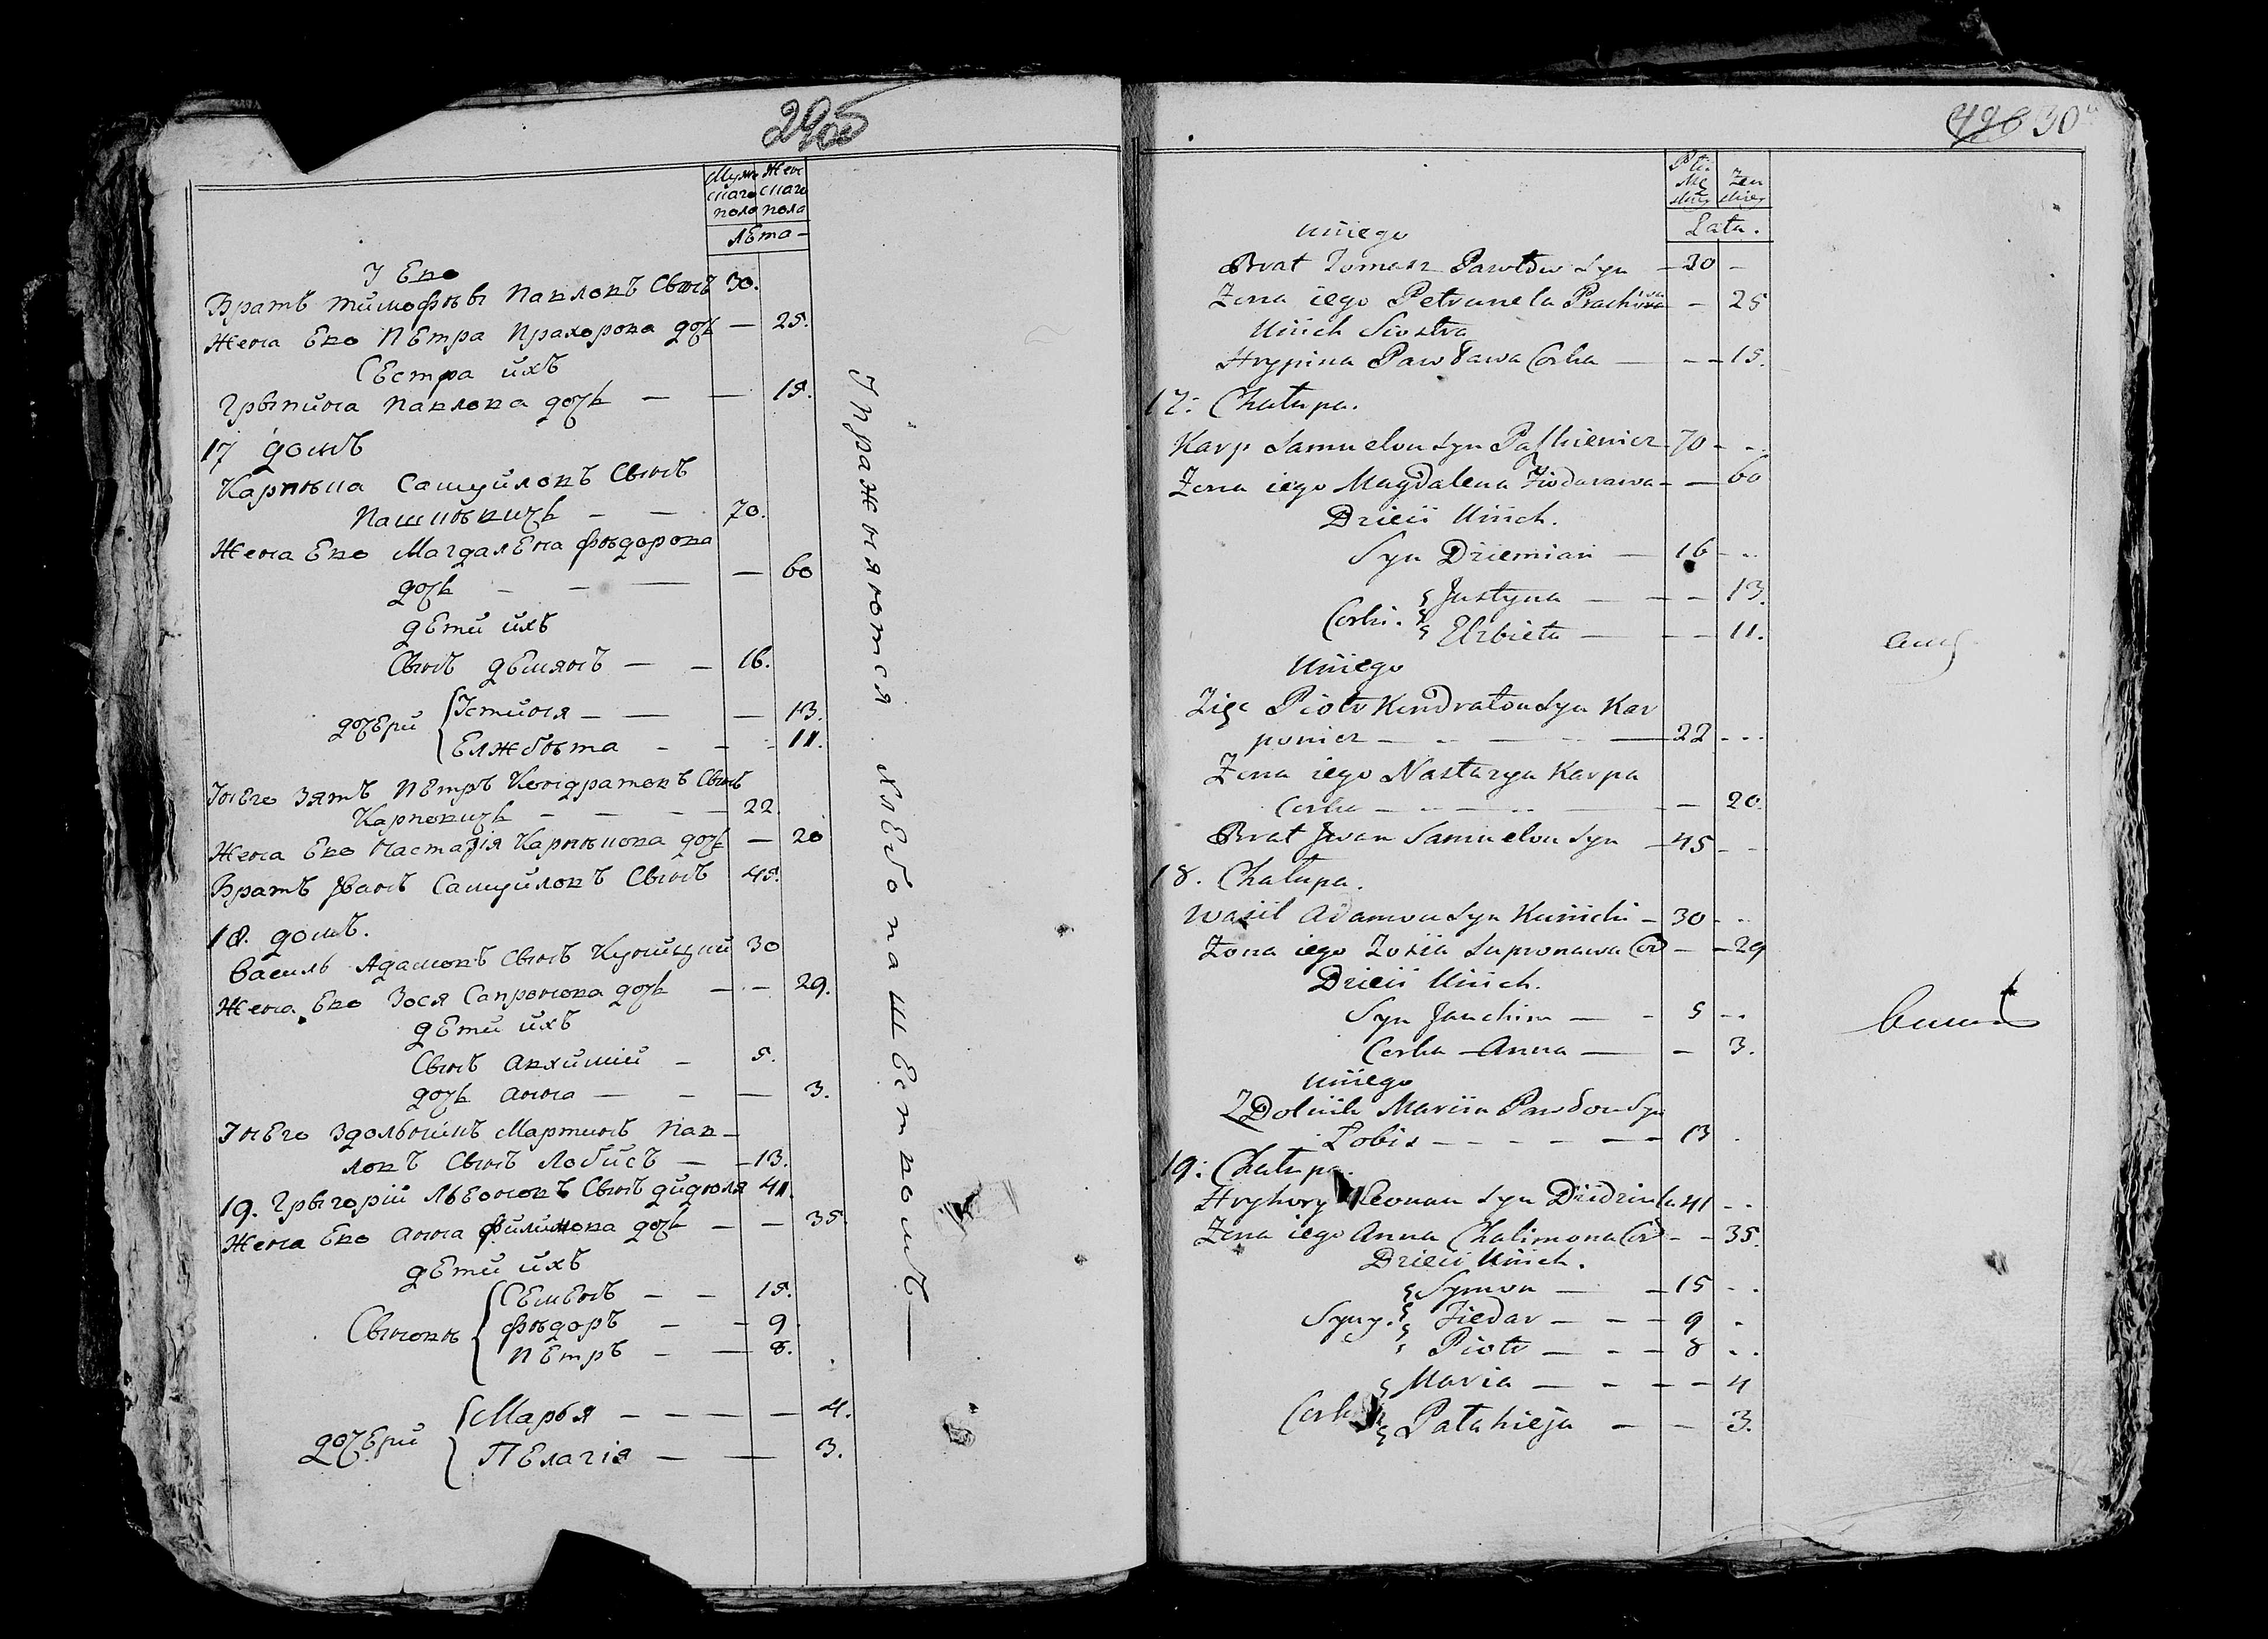 29об
Муж Жен
скаго скаго
пола пола
лѣта –
У Ево
Братъ Тимофѣи Павловъ Сынъ 30.
Жена Ево Петра Прахорова дочь — 25.
Сестра ихъ
Грыпина Павлова дочь — — 15.
17 домъ
Карпѣиа Самуйловъ Сынъ
Пашкѣвичь — — 70.
Жена Ево Магдалена Фѣдорова
дочь — — — 60
дети ихъ
Сынъ демянъ — — 16.
дочери Устиня — — — 13.
Елжбѣта — — 11.
У него Зять Петръ Кондратовъ Сынъ
Карповичь — — — 22.
Жена Ево Настазія Карпѣиова дочь — 20
Братъ Иванъ Самуйловъ Сынъ 45.
18. домъ.
Василь Адамовъ Сынъ Куницкий 30
Жена Ево Зося Сапронова дочь — — 29.
дети ихъ
Сынъ Авхимий — 5.
дочь Анна — — — 3.
У него Здольникъ Мартинъ Пав–
ловъ Сынъ Лобисъ — — 13.
19. Грыгорий Львоновъ Сынъ дидюля 41.
Жена Ево Анна Филимонова дочь — — 35.
дети ихъ
Сыновѣ Семенъ — — 15.
Фѣдоръ — — 9.
Петръ — — 8.
дочери Марья — — — — 4.
Пелагія — — 3.
Упражняются хлебопашествомъ —
30
Płci
Mę Żen
skiey skiey
Lata.
U niego
Brat Tomasz Pawłow Syn — 30 –
Żona iego Petrunela Prachorowa — 25
U nich Siostra
Hrypina Pawłowa Corka — — – 15.
17: Chałupa.
Karp Samuelow Syn Paszkiewicz 70 – –
Żona iego Magdalena Fiodarawa – — 60
Dzieci U nich.
Syn Dziemian — 16 – –
Corki. Justyna — — – 13.
Elzbieta — – – 11.
U niego
Zięć Piotr Kondratow Syn Kar
powicz — – – — 22 – – –
Żona iego Nastazya Karpa
Corka — – – — – — 20.
Brat Jwan Samuelow Syn — 45 – –
18. Chałupa.
Wasil Adamow Syn Kunicki – 30 – –
Żona iego Zosia Supronawa Cor — – 29
Dzieci U nich.
Syn Jauchim — – 5 – –
Corka Anna — – 3.
U niego
Zdolnik Marcin Pawłow Syn
Łobis — – – – — 13 .
19: Chałupa.
Hryhory Leonau Syn Dzidziula 41 – –
Żona iego Anna Chalimona Cor – – 35.
Dzieci U nich.
Syny. Symon — — 15 – .
Fiedar — – – 9 –
Piotr — – – 8 – .
Corki Maria — – – – 4
Patahieja — — 3.